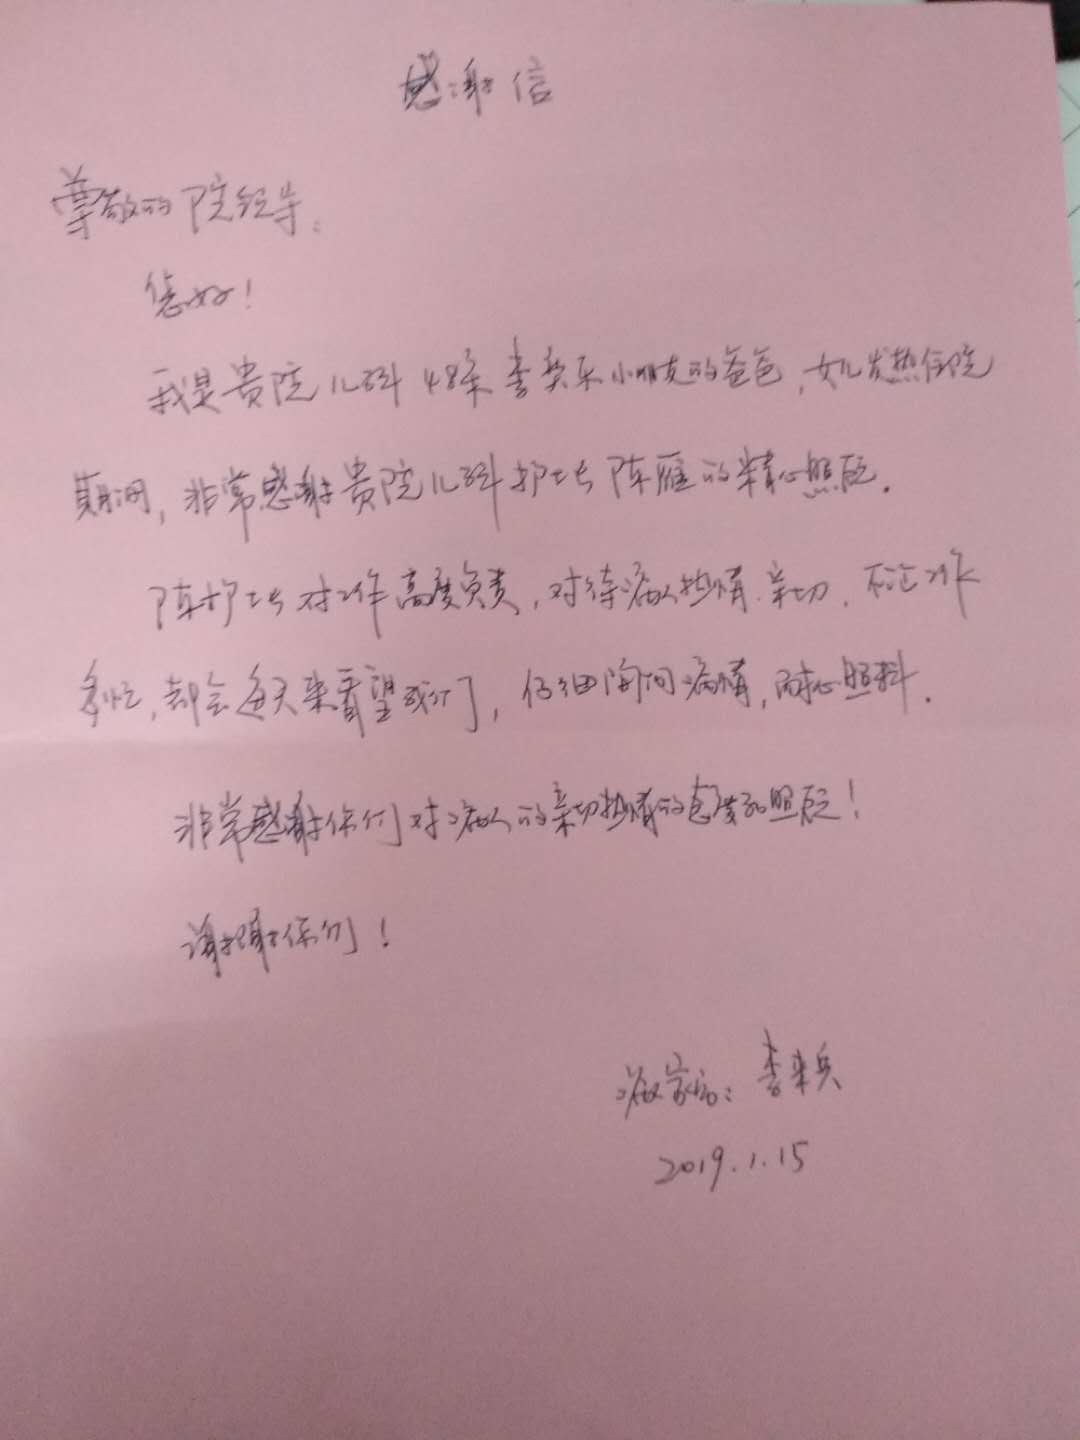 感谢信
尊敬的院领导:
您好!
我是贵院儿科48床李奕乐小朋友的爸爸,女儿发热住院
期间,非常感谢贵院儿科护士长陈雁的精心照顾.
陈护士长对工作高度负责,对待病人热情.亲切,不论工作
多忙,都会每天来看望我们,仔细询问病情,耐心照料.
非常感谢你们对病人的亲切热情的态度和照顾!
谢谢你们!
家属:李来兵
2019.1.15